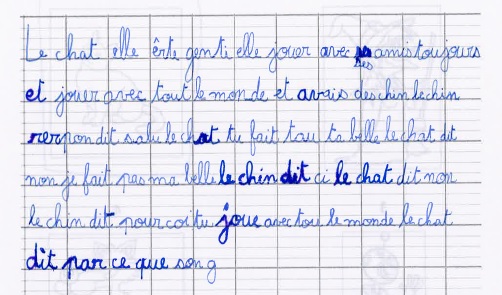 Le chat elle êrte genti elle jouer avec ses amis toujours
et jouer avec tout le monde et avais des chin le chin
rerpondit salu le chat tu fait tau ta belle le chat dit
non je fait pas ma belle le chin dit ci le chat dit non
le chin dit pourcoi tu joue avec tou le monde le chat
dit par ce que son g